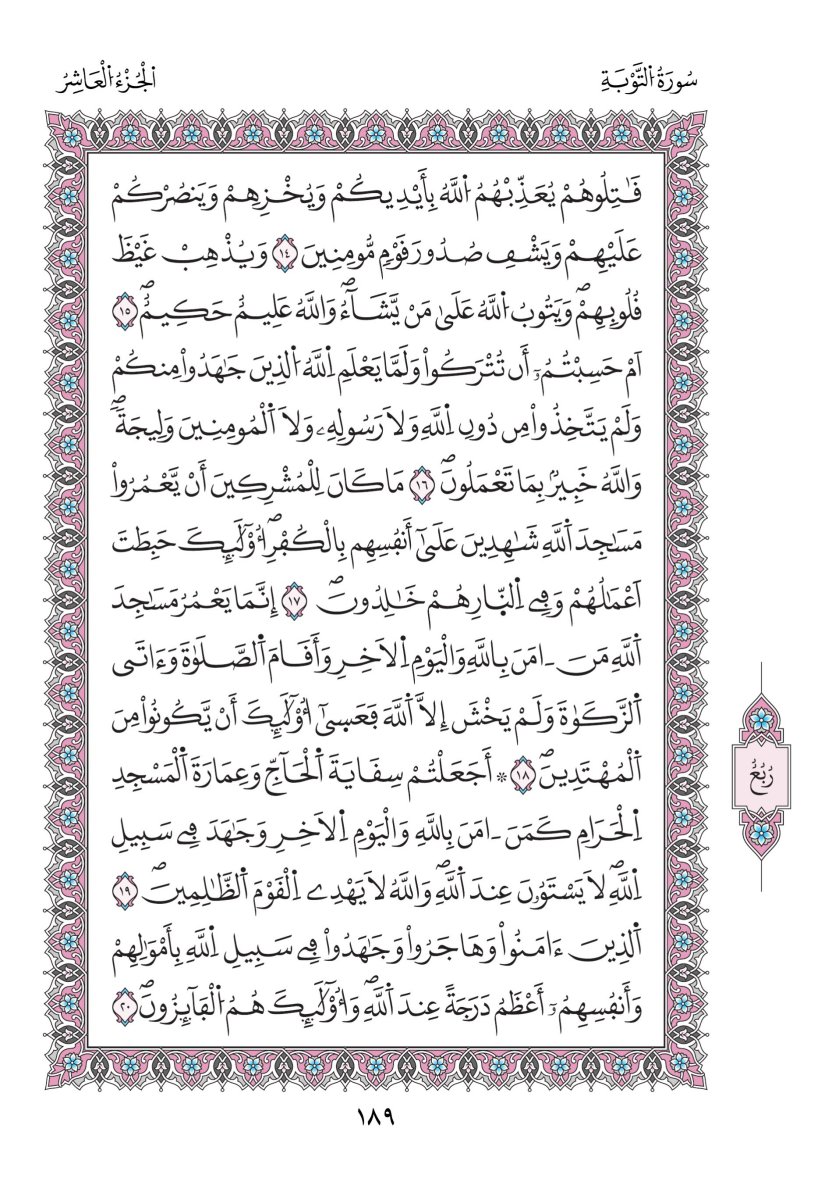 سُورَةُ اُ۬لتَّوْبَةِ
اُ۬لْجُزْءُ اُ۬لْعَاشِرُ
قَٰتِلُوهُمْ يُعَذِّبْهُمُ اُ۬للَّهُ بِأَيْدِيكُمْ وَيُخْزِهِمْ وَيَنصُرْكُمْ
عَلَيْهِمْ وَيَشْفِ صُدُورَ قَوْمٖ مُّومِنِينَ ١٤ وَيُذْهِبْ غَيْظَ
قُلُوبِهِمْۖ وَيَتُوبُ اُ۬للَّهُ عَلَىٰ مَنْ يَّشَآءُۖ وَاللَّهُ عَلِيمٌ حَكِيمٌۖ ١٥
اَمْ حَسِبْتُمُۥٓ أَن تُتْرَكُواْ وَلَمَّا يَعْلَمِ اِ۬للَّهُ اُ۬لذِينَ جَٰهَدُواْ مِنكُمْ
وَلَمْ يَتَّخِذُواْ مِن دُونِ اِ۬للَّهِ وَلَا رَسُولِهِۦ وَلَا اَ۬لْمُومِنِينَ وَلِيجَةٗۖ
وَاللَّهُ خَبِيرُۢ بِمَا تَعْمَلُونَۖ ١٦ مَا كَانَ لِلْمُشْرِكِينَ أَنْ يَّعْمُرُواْ
مَسَٰجِدَ اَ۬للَّهِ شَٰهِدِينَ عَلَىٰٓ أَنفُسِهِم بِالْكُفْرِۖ أُوْلَٰٓئِكَ حَبِطَتَ
اَعْمَٰلُهُمْ وَفِے اِ۬لنّ۪ارِ هُمْ خَٰلِدُونَۖ ١٧ إِنَّمَا يَعْمُرُ مَسَٰجِدَ
اَ۬للَّهِ مَنَ اٰمَنَ بِاللَّهِ وَالْيَوْمِ اِ۬لَاخِرِ وَأَقَامَ اَ۬لصَّلَوٰةَ وَءَاتَى
اَ۬لزَّكَوٰةَ وَلَمْ يَخْشَ إِلَّا اَ۬للَّهَ فَعَس۪ىٰٓ أُوْلَٰٓئِكَ أَنْ يَّكُونُواْ مِنَ
اَ۬لْمُهْتَدِينَۖ ١٨ ۞ أَجَعَلْتُمْ سِقَايَةَ اَ۬لْحَآجِّ وَعِمَارَةَ اَ۬لْمَسْجِدِ
اِ۬لْحَرَامِ كَمَنَ اٰمَنَ بِاللَّهِ وَالْيَوْمِ اِ۬لَاخِرِ وَجَٰهَدَ فِے سَبِيلِ
اِ۬للَّهِۖ لَا يَسْتَوُۥنَ عِندَ اَ۬للَّهِۖ وَاللَّهُ لَا يَهْدِے اِ۬لْقَوْمَ اَ۬لظَّٰلِمِينَۖ ١٩
اَ۬لذِينَ ءَامَنُواْ وَهَاجَرُواْ وَجَٰهَدُواْ فِے سَبِيلِ اِ۬للَّهِ بِأَمْوَٰلِهِمْ
وَأَنفُسِهِمُۥٓ أَعْظَمُ دَرَجَةً عِندَ اَ۬للَّهِۖ وَأُوْلَٰٓئِكَ هُمُ اُ۬لْفَآئِزُونَۖ ٢٠
رُبُعُ
١٨٩